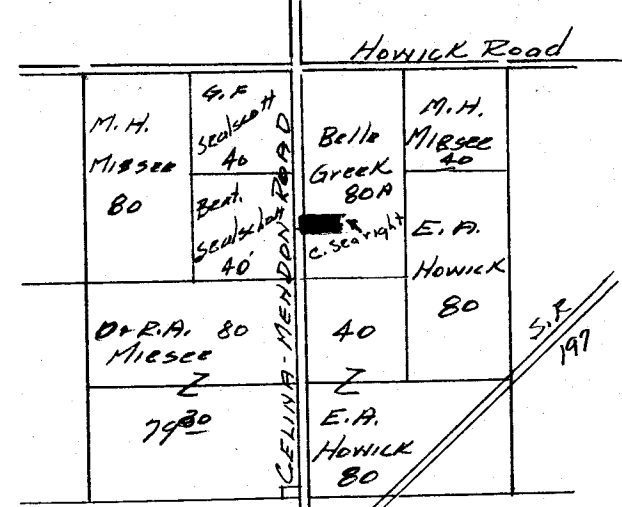 Howick Road
M. H.
Miesee
80
G. F
Sealscott
40
Beat.
Sealschott
40
CELINA - MENDON - ROAD
Belle
Greek
80A
C. Searight
M. H.
Miesee
40
E. A.
Howick
80
D & R.A. 80
Miesee
Z
79 80
40
Z
E. A.
Howick
80
S.R
197